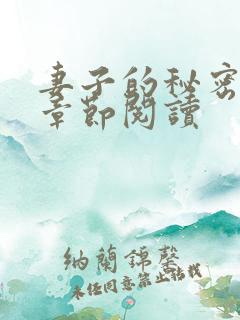 妻子的秘密
章節閱讀
納蘭錦馨
未經同意禁止搭載